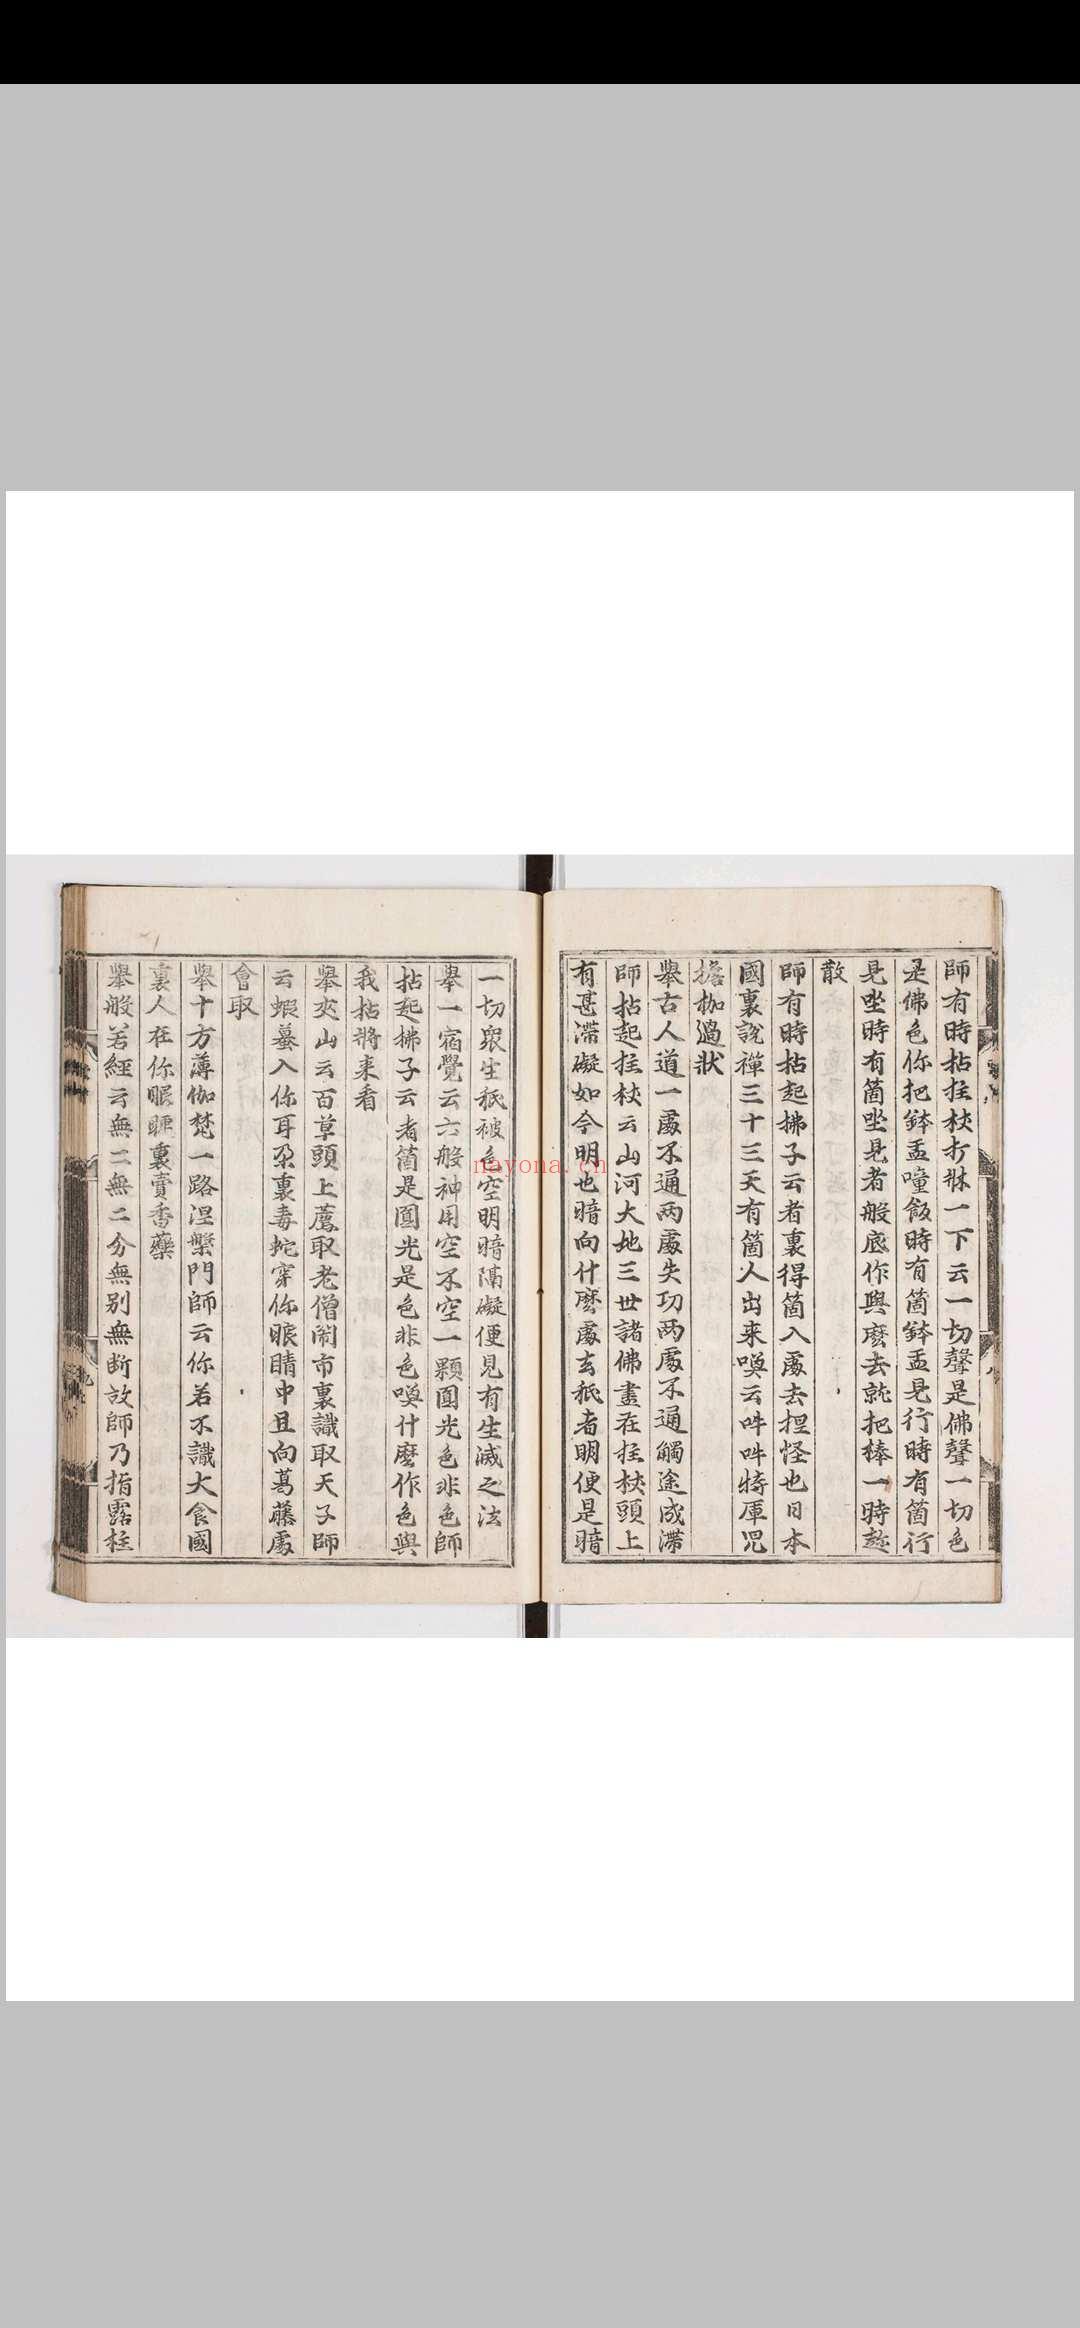 師有時拈拄杖打牀一下云一切聲是佛聲一切色
是佛色你把鉢盂噇飯時有箇鉢盂見行時有箇行
見坐時有箇坐見者般底作與麽去就把棒一時趂
散
師有時拈起拂子云者裏得箇入處去揑怪也日本
國裏說禪三十三天有箇人出来喚云吽吽特庫児
擔枷過狀
舉古人道一處不通兩處失功兩處不通觸途成滯
師拈起拄杖云山河大地三世諸佛盡在拄杖頭上
有甚滯礙如今明也暗向什麽處去秪者明便是暗
一切衆生秪被色空明暗隔礙便見有生滅之法
舉一宿覺云六般神用空不空一顆圓光色非色師
拈起拂子云者箇是圓光是色非色喚什麽作色與
我拈將来看
舉夾山云百草頭上薦取老僧閙市裏識取天子師
云蝦蟇入你耳朶裏毒蛇穿你眼睛中且向葛藤處
會取
舉十方薄伽梵一路涅槃門師云你若不識大食國
裏人在你眼睡裏賣香藥
舉般若經云無二無二分無别無断故師乃指露柱
nayona.cn